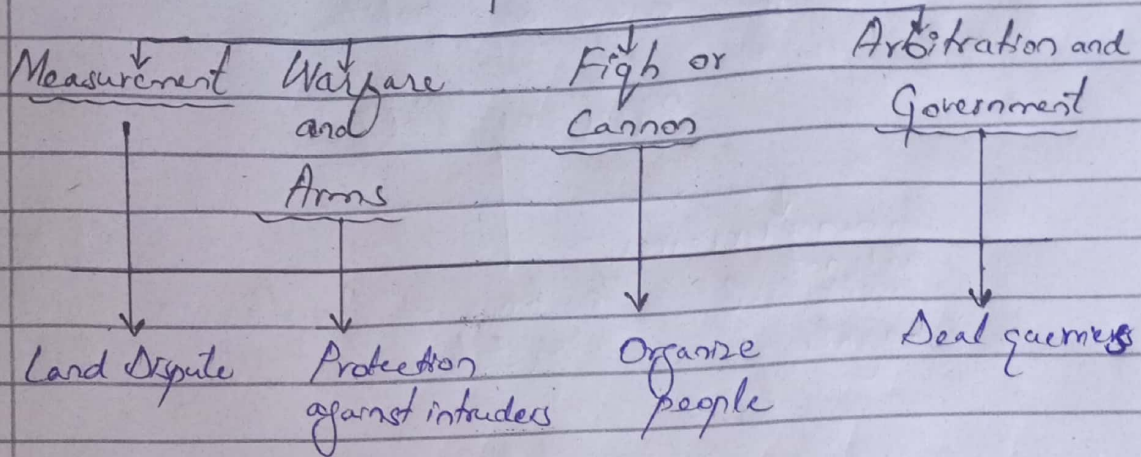 Measurement
Warfare
and
Arms
Fiqh or
Cannon
Arbitration and
Government
Land Dispute
Protection
against intruders
Organize
people
Deal